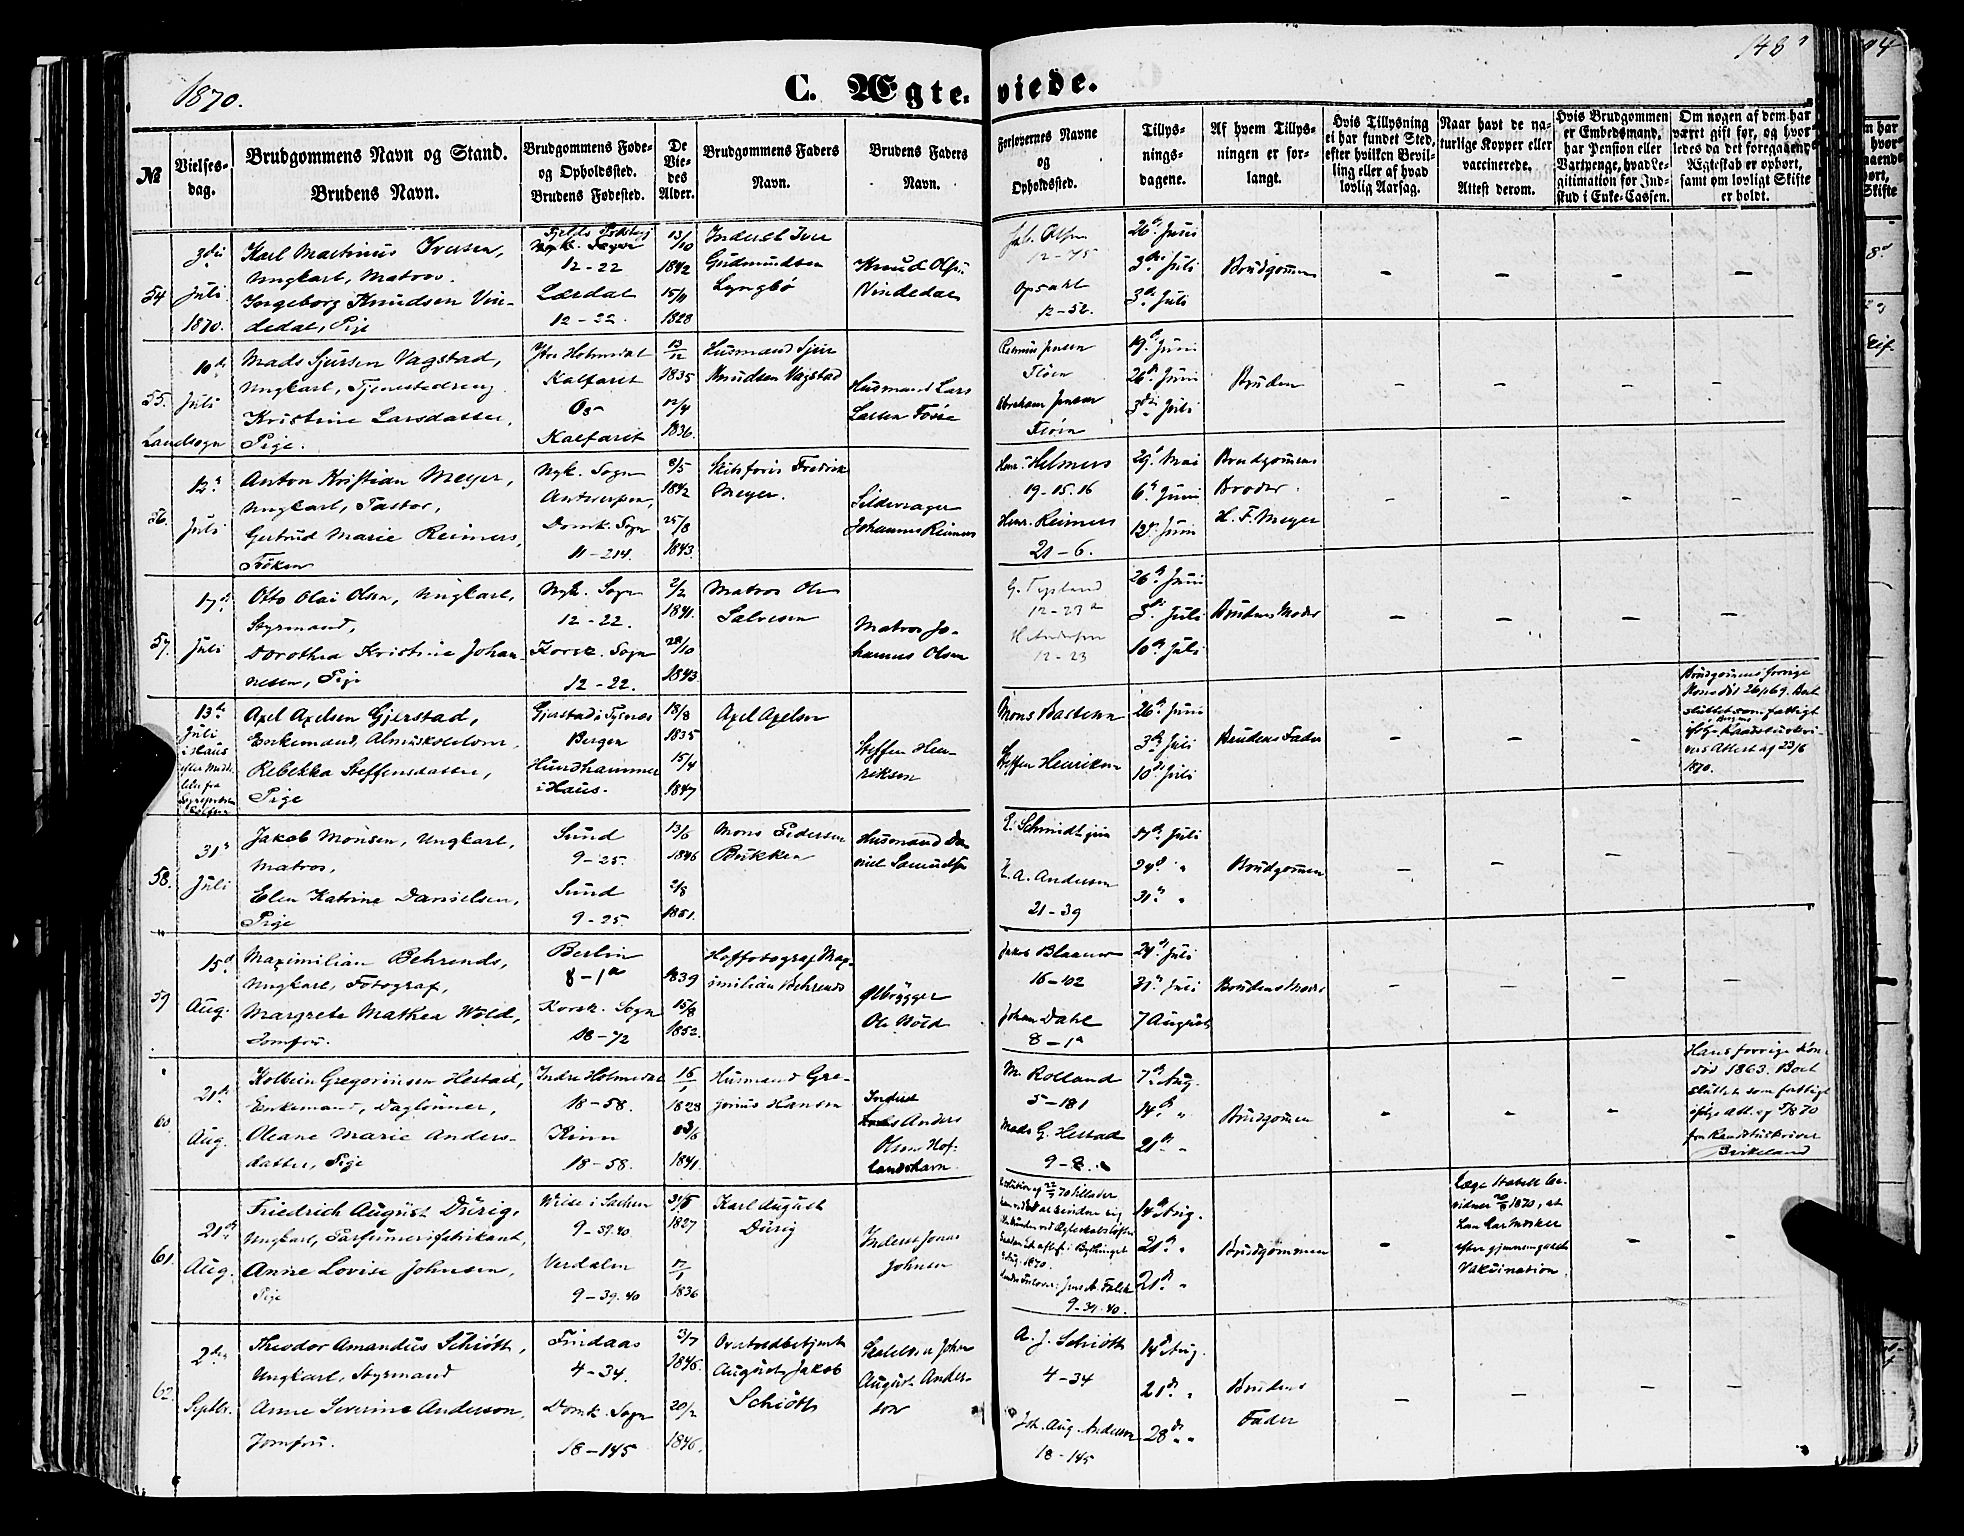 1870.
C. Ægte-
viede.
148
№
Vielses-
dag.
Brudgommens Navn og Stand.
Brudens Navn.
Brudgommens Føde-
og Opholdssted.
Brudens Fødested.
De
Vie-
des
Alder.
Brudgommens Faders
Navn.
Brudens Faders
Navn.
Forlovernes Navne
og
Opholdssted.
Tillys-
nings-
dagene.
Af hvem Tillys-
ningen er for-
langt.
Hvis Tillysning
ei har fundet Sted,
efter hvilken Bevil-
ling eller af hvad
lovlig Aarsag.
Naar havt de na-
turlige Kopper eller
vaccinerede.
Attest derom.
Hvis Brudgommen
er Embedsmand,
har Pension eller
Vartpenge, hvad Le-
gitimation for Ind-
skud i Enke-Cassen.
Om nogen af dem har
været gift før, og hvor-
ledes da det foregaaende
Ægteskab er ophørt,
samt om lovligt Skifte
er holdt.
54
3die
Juli
1870.
Karl Martinus Iversen,
Ungkarl, Matros.
Ingeborg Knudsen Vin-
dedal, Pige
12-22
Lærdal
12-22.
13/10
1842
15/11
1828
Inderst Iver
Gudmundsen
Lyngbø
Knud Olsen
Vindedal
Joh. Olsen
12-45
Opsahl
12-52.
26de Juni
3die Juli
3die Juli
Brudgommen
55.
10de
Juli
Landsogn
Mads Sjursen Vagstad,
Ungkarl, Tjenestedreng
Kristine Larsdatter,
Pige.
Ytre Holmedal
Kalfaret
Os
Kalfaret
13/12
1835
12/4
1836.
Husmand Sjur
Knudsen Vagstad
Husmand Lars
Larsen
Rasmus Jensen
Fløen
Abraham Jensen
Fløen
19de Juni
26de Juni
3die Juli
Bruden
56.
12te
Juli
Anton Kristian Meyer,
Ungkarl, Pastor,
Gertrud Marie Reimers,
Frøken
Nyk. Sogn
Antwerpen,
Domk. Sogn
11-214.
9/5
1842
25/8
1843.
Skibsfører Fredrik
Meyer.
Sildevrager
Johannes Reimers
Henr. Helmers
19-15.16
Henr. Reimers
21-6.
29de Mai
6te Juni
12te Juni
Brudgommens
Broder
H. F. Meyer
57.
17de
Juli
Otto Olai Olsen, Ungkarl,
Styrmand,
Dorothea Kristine Johan-
nesen, Pige
Nyk. Sogn
12-22.
Korsk. Sogn
12-22.
2/2
1841.
28/10
1843.
Matros Ole
Salvesen
Matros Jo-
hannes Olsen
12-23 a
H. Andersen
12-23
26de Juni
3die Juli
10de Juli
Brudens Moder
13de
Juli
i Haus
efter Medde-
lelse fra
Axel Axelsen Gjerstad,
Enkemand, Almueskolelærer,
Rebekka Steffensdatter,
Pige
Gjerstad i Tysnes
Bergen
Hundhammer
i Haus.
18/8
1835
15/4
1847
Axel Axelsen
Steffen Hen-
riksen
Mons Bastesen
Steffen Henriksen
26de Juni
3die Juli
10de Juli
Brudens Fader
Brudgommens forrige
Kone død 26/1 69. Boet
sluttet som fattigt
ifølge Raadstueskri-
vers Attest af 23/6
1870.
58.
31te
Juli
Jakob Monsen, Ungkarl,
Matros,
Elen Katrine Danielsen,
Pige
Sund
9-25.
Sund
9-25.
13/6
1846
2/8
1851.
Mons Pedersen
Bukken
Husmand Da-
niel Samuelsen
E. Schmidt jun
E. A. Andersen
21-39
17de Juli
24de "
31te "
Brudgommen
59
15de
Aug.
Maximilian Behrends,
Ungkarl, Fotograf,
Margrete Mathea Wold,
Jomfru.
Berlin
8-1a
Korsk. Sogn
18-72
1839
15/8
1852.
Hoffotograf Max-
imilian Behrends
Ølbrygger
Ole Wold
Jakob Blaauw
16-102
Johan Dahl
8-1a
24de Juli
31te Juli
7 August
Brudens Moder
60.
21de
Aug.
Kolbein Gregoriussen Hestad,
Enkemand, Daglønner,
Oleane Marie Anders-
datter, Pige
Indre Holmedal
18-58.
Kinn
18-58.
16/1
1828
1841.
Husmand Gre-
gorius Hansen
Inderst
Anders
Olsen Hof-
landshavn
M. Rolland
5-181
Mads G. Hestad
9-8.
7de Aug.
14de "
21de "
Brudgommen
Hans forrige Kone
død 1863. Boet
sluttet som fattigt
ifølge Att. af 5/8 70
fra Raadstueskriver
Birkeland
61.
21de
Aug.
Friedrich August Dürig,
Ungkarl, Parfumerifabrikant,
Anne Lovise Johnsen,
Pige
Weise i Sachsen
9-39.40
Verdalen
9-39.40
31/5
1827
17/1
1836
Karl August
Dürig
Inderst Jonas
Johnsen
Jens A. Falck
9-39.40.
14de Aug.
21de "
21de "
Brudgommen
Læge Stabell be-
vidner 20/8 1870, at
han har Mærker
efter gjennemgaaet
Vakcination.
62.
2den
Septbr.
Theodor Amandus Schiøtt,
Ungkarl, Styrmand
Anne Severine Anderson,
Jomfru.
Findaas
4-34.
Domk. Sogn
18-145
3/7
1846.
20/2
1846.
August Jakob
Schiøtt
August Ander-
son
A. J. Schiøtt
4-34
Joh. Aug. Anderson
18-145
14de Aug.
21de "
28de "
Brudens
Fader